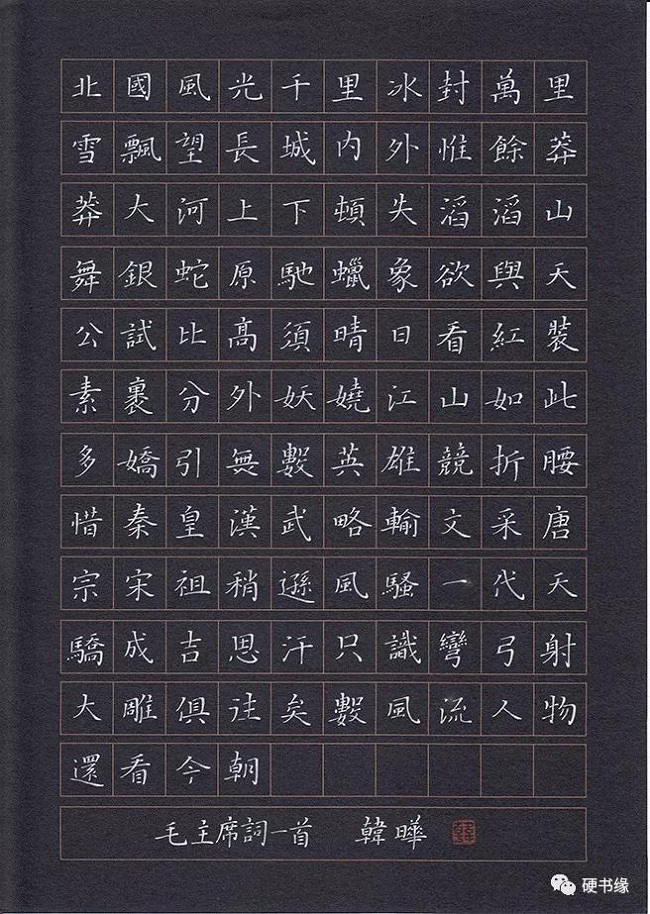 北國風光千里冰封萬里
雪飄望長城內外惟餘莽
莽大河上下頓失滔滔山
舞銀蛇原馳蠟象欲與天
公試比高須晴日看紅裝
素裹分外妖嬈江山如此
多嬌引無數英雄競折腰
惜秦皇漢武略輸文采唐
宗宋祖稍遜風騷一代天
驕成吉思汗只識彎弓射
大雕俱往矣數風流人物
還看今朝
毛主席詞一首 韓曄
硬书缘